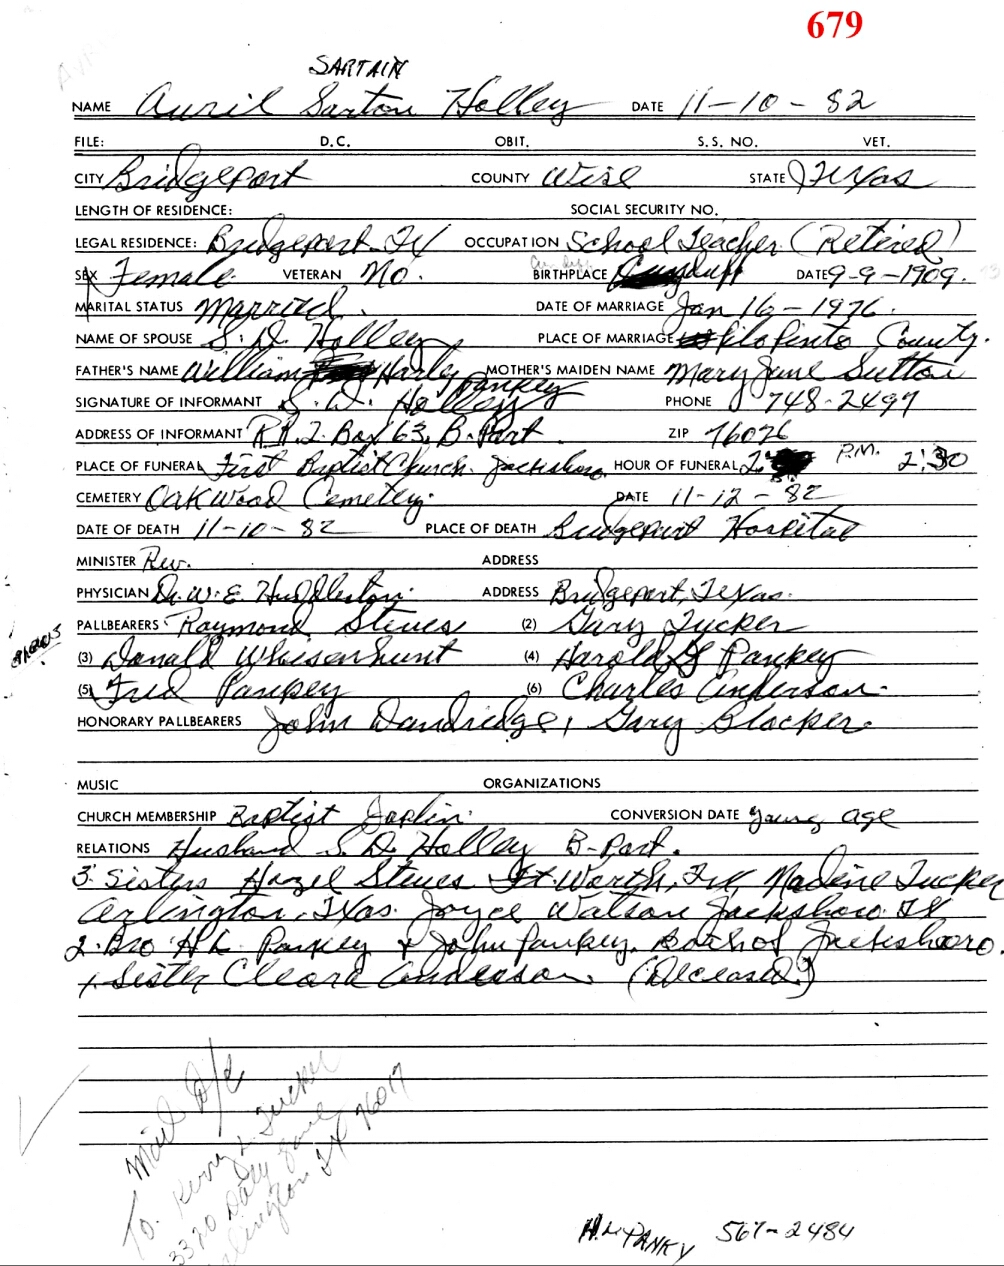 679
SARTAIN
NAME Avril Sarton Holley DATE 11-10-82
FILE: D.C. OBIT. S.S. NO. VET.
CITY Bridgeport COUNTY Wise STATE Texas
LENGTH OF RESIDENCE: SOCIAL SECURITY NO.
LEGAL RESIDENCE: Bridgeport TX OCCUPATION School Teacher (Retired)
SEX Female VETERAN No. BIRTHPLACE DATE 9-9-1909.
MARITAL STATUS Married. DATE OF MARRIAGE Jan 16-1976.
NAME OF SPOUSE S. D. Holley PLACE OF MARRIAGE Pilo Pinto County.
FATHER'S NAME William Harley Pankey MOTHER'S MAIDEN NAME Mary Jane Sutton
SIGNATURE OF INFORMANT S. D. Holley PHONE 748-2497
ADDRESS OF INFORMANT Rt. 2 Box 63, B. Port. ZIP 76026
PLACE OF FUNERAL First Baptist Church Jacksboro HOUR OF FUNERAL 2: P.M. 2:30
CEMETERY Oakwood Cemetery. DATE 11-12-82
DATE OF DEATH 11-10-82 PLACE OF DEATH Bridgeport Hospital
MINISTER Rev. ADDRESS
PHYSICIAN Dr. W. E. Huddleston. ADDRESS Bridgeport, Texas.
PALLBEARERS Raymond Steves (2) Gary Tucker
(3) Donald Whisenhunt (4) Harold G Pankey
(5) Fred Pankey (6) Charles Anderson.
HONORARY PALLBEARERS John Dandridge, Gary Blocker.
MUSIC ORGANIZATIONS
CHURCH MEMBERSHIP Baptist Joplin. CONVERSION DATE young age
RELATIONS Husband S. D. Holley B-Port.
3. Sisters Hazel Steves Ft Worth, TX, Madine Tucker
Arlington, TXas. Joyce Watson Jacksboro TX
2. Bro H L Pankey + John Pankey. Both of Jacksboro.
1 Sister Cleara Anderson (Deceased)
Mail D/C
To. Kerry L Tucker
3320 Daly Lane
Arlington TX 76017
H.L. PANKY 567-2484